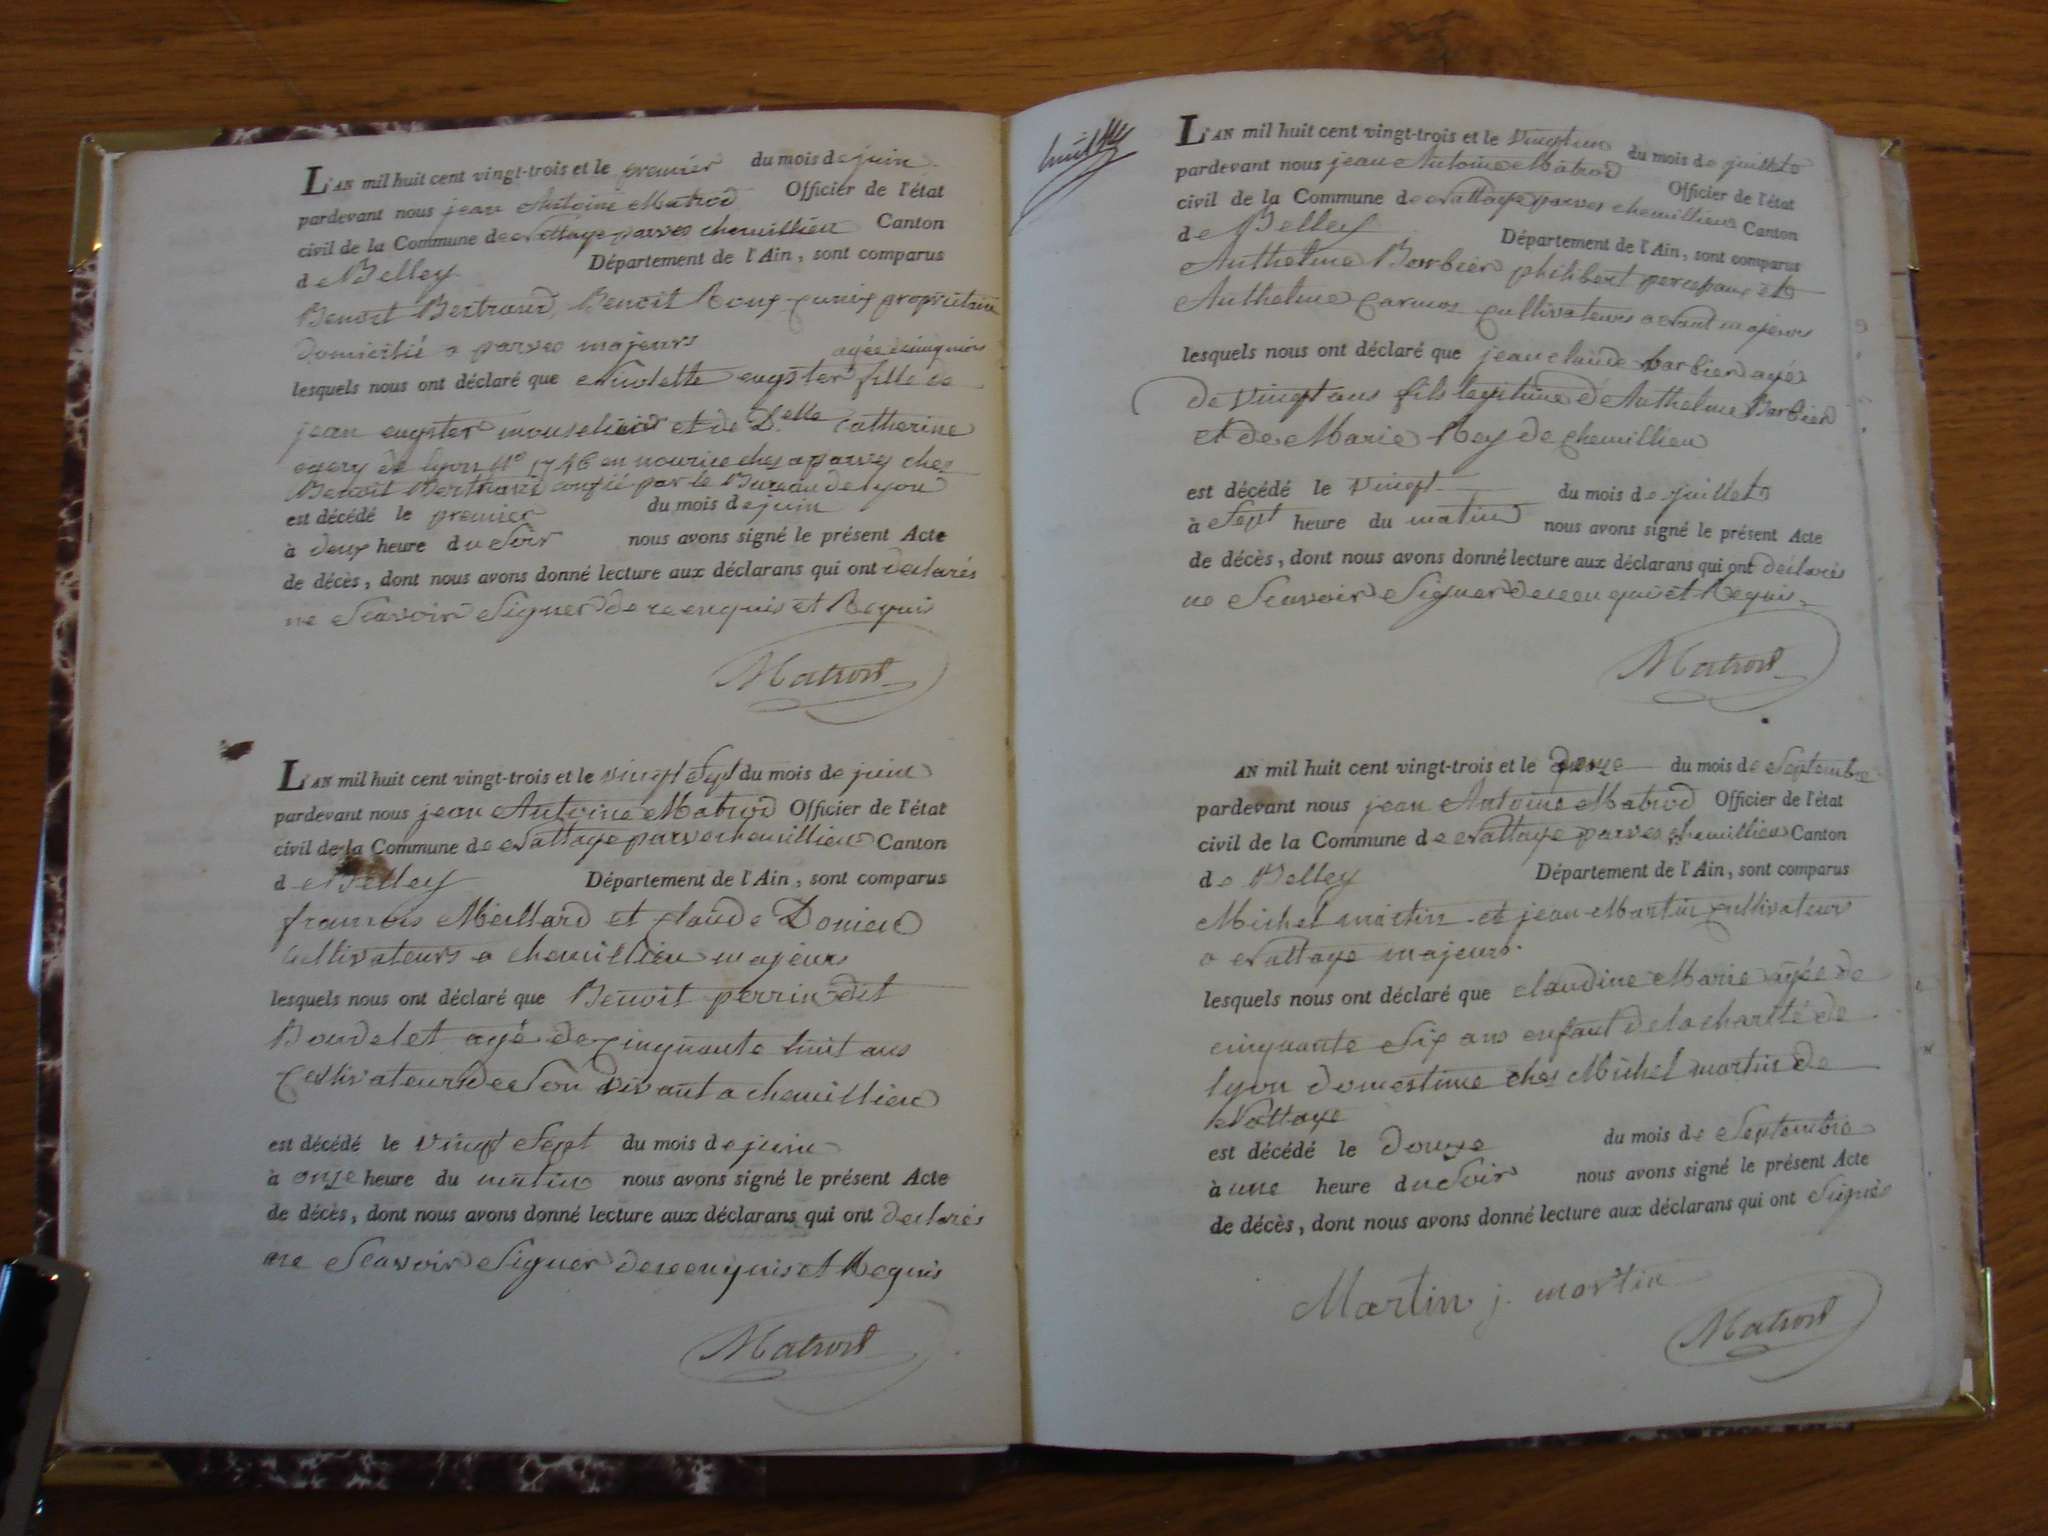 L'AN mil huit cent vingt-trois et le premier du mois de juin
pardevant nous jean Antoine Matrod Officier de l'état
civil de la Commune de Nattage parves chemillieu Canton
de Belley Département de l'Ain, sont comparus
Benoit Bertrand, Benoit Roux propriétaire
domicilié a parves majeurs
agée de cinq mois
lesquels nous ont déclaré que Nicolette eugster fille de
jean eugster et de D.elle Catherine
de lyon N.o 1746 en nourice a parves chez
Benoit Bertrand confié par le Bureau de lyon
est décédé le premier du mois de juin
à deux heure du soir nous avons signé le présent Acte
de décès, dont nous avons donné lecture aux déclarans qui ont declarés
ne Scavoir Signer de ce enquis et Requis
Matrod
L'AN mil huit cent vingt-trois et le vingt Sept du mois de juin
pardevant nous jean Antoine Matrod Officier de l'état
civil de la Commune de Nattage parves chemillieu Canton
de Belley Département de l'Ain, sont comparus
francois Meillard et Claude Donieu
Cultivateurs a chemillieu majeurs
lesquels nous ont déclaré que Benoit perrin dit
Bondelet agé de cinquante huit ans
Cultivateur de Son vivant a chemillieu
est décédé le vingt Sept du mois de juin
à onze heure du matin nous avons signé le présent Acte
de décès, dont nous avons donné lecture aux déclarans qui ont declarés
ne Scavoir Signer de ce enquis et Requis
Matrod
huit
L'AN mil huit cent vingt-trois et le vingt un du mois de juillet
pardevant nous jean Antoine Matrod Officier de l'état
civil de la Commune de Nattage parves chemillieu Canton
de Belley Département de l'Ain, sont comparus
Anthelme Barbier philibert percepaux et
Anthelme Carmos Cultivateurs majeurs
lesquels nous ont déclaré que jean claude barbier agé
de vingt ans fils legitime de Anthelme Barbier
et de Marie Rey de chemillieu
est décédé le vingt du mois de juillet
à Sept heure du matin nous avons signé le présent Acte
de décès, dont nous avons donné lecture aux déclarans qui ont declarés
ne Scavoir Signer de ce enquis et Requis
Matrod
AN mil huit cent vingt-trois et le douze du mois de Septembre
pardevant nous jean Antoine Matrod Officier de l'état
civil de la Commune de Nattage parves chemillieu Canton
de Belley Département de l'Ain, sont comparus
Michel martin et jean Martin Cultivateurs
a Nattage majeurs.
lesquels nous ont déclaré que claudine Marie agée de
cinquante Six ans enfant de la charité de
lyon domestique chez Michel martin de
Nattage
est décédé le douze du mois de Septembre
à une heure du Soir nous avons signé le présent Acte
de décès, dont nous avons donné lecture aux déclarans qui ont Signés
Martin j. martin
Matrod